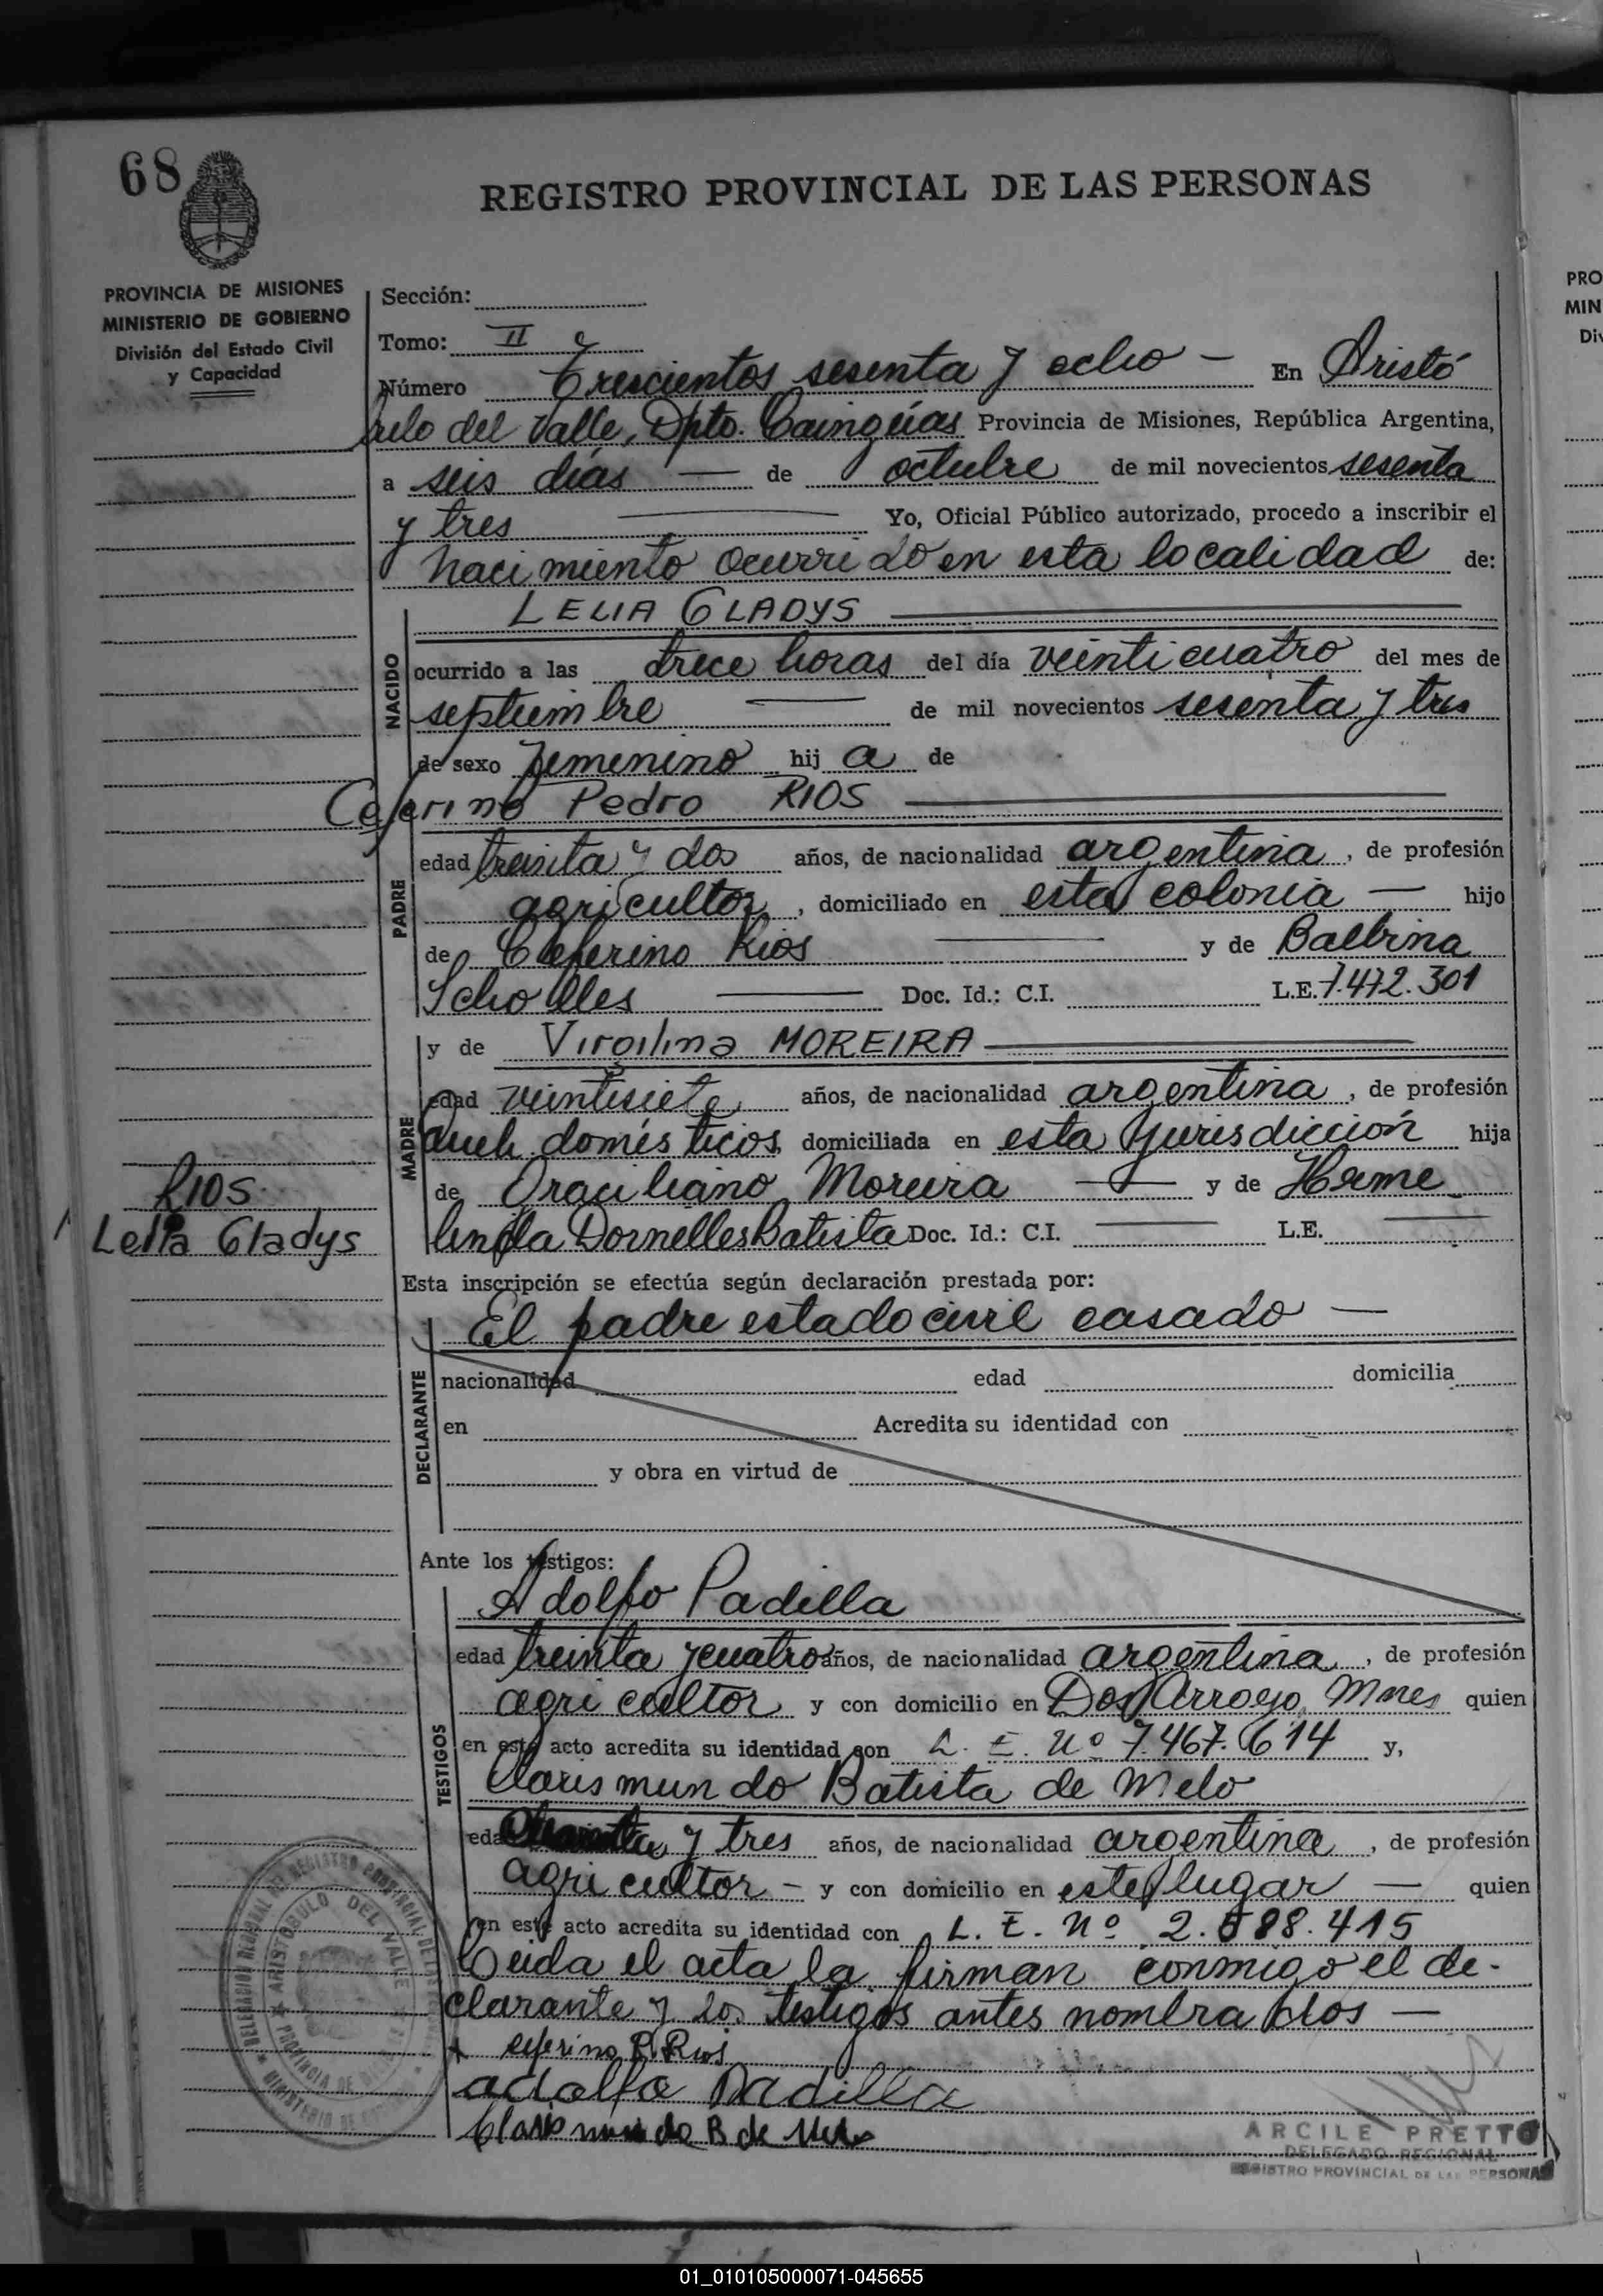 68
REGISTRO PROVINCIAL DE LAS PERSONAS
PROVINCIA DE MISIONES
MINISTERIO DE GOBIERNO
División del Estado Civil
y Capacidad
Sección:
Tomo: II
Número Trescientos sesenta y ocho — En Aristó
bulo del Valle, Dpto. Cainguas Provincia de Misiones, República Argentina,
a seis días — de octubre de mil novecientos sesenta
y tres — Yo, Oficial Público autorizado, procedo a inscribir el
nacimiento ocurrido en esta localidad de:
NACIDO
LELIA GLADYS
ocurrido a las trece horas del día veinticuatro del mes de
septiembre — de mil novecientos sesenta y tres
de sexo femenino hij a de
Ceferino Pedro RIOS
PADRE
edad treinta y dos años, de nacionalidad argentina, de profesión
agricultor, domiciliado en esta colonia — hijo
de Ceferino Rios — y de Balbina
Scholles — Doc. Id.: C.I. L.E. 7.472.301
MADRE
y de Virgilina MOREIRA
edad veintisiete años, de nacionalidad argentina, de profesión
queh. domésticos, domiciliada en esta jurisdicción hija
de Graciliano Moreira — y de Herme
linda Dornelles Batista Doc. Id.: C.I. — L.E. —
RIOS
Lelia Gladys
Esta inscripción se efectúa según declaración prestada por:
DECLARANTE
El padre estado civil casado —
nacionalidad edad domicilia
en Acredita su identidad con
y obra en virtud de
Ante los testigos:
TESTIGOS
Adolfo Padilla
edad treinta y cuatro años, de nacionalidad argentina, de profesión
agricultor y con domicilio en Dos Arroyo, Mnes quien
en este acto acredita su identidad con L. E. Nº 7.467.614 y,
Clarismundo Batista de Melo
edad y tres años, de nacionalidad argentina, de profesión
agricultor — y con domicilio en este lugar — quien
en este acto acredita su identidad con L. E. Nº 2.588.415
Leida el acta la firman conmigo el de-
clarante y los testigos antes nombrados —
x eferino P. Rios
adolfo Padilla
Clarismundo B de Melo
ARISTOBULO DEL VALLE
PROVINCIA DE MISIONES
ARCILE PRETTO
DELEGADO REGIONAL
REGISTRO PROVINCIAL DE LAS PERSONAS
PRO
MIN
Div
01_010105000071-045655